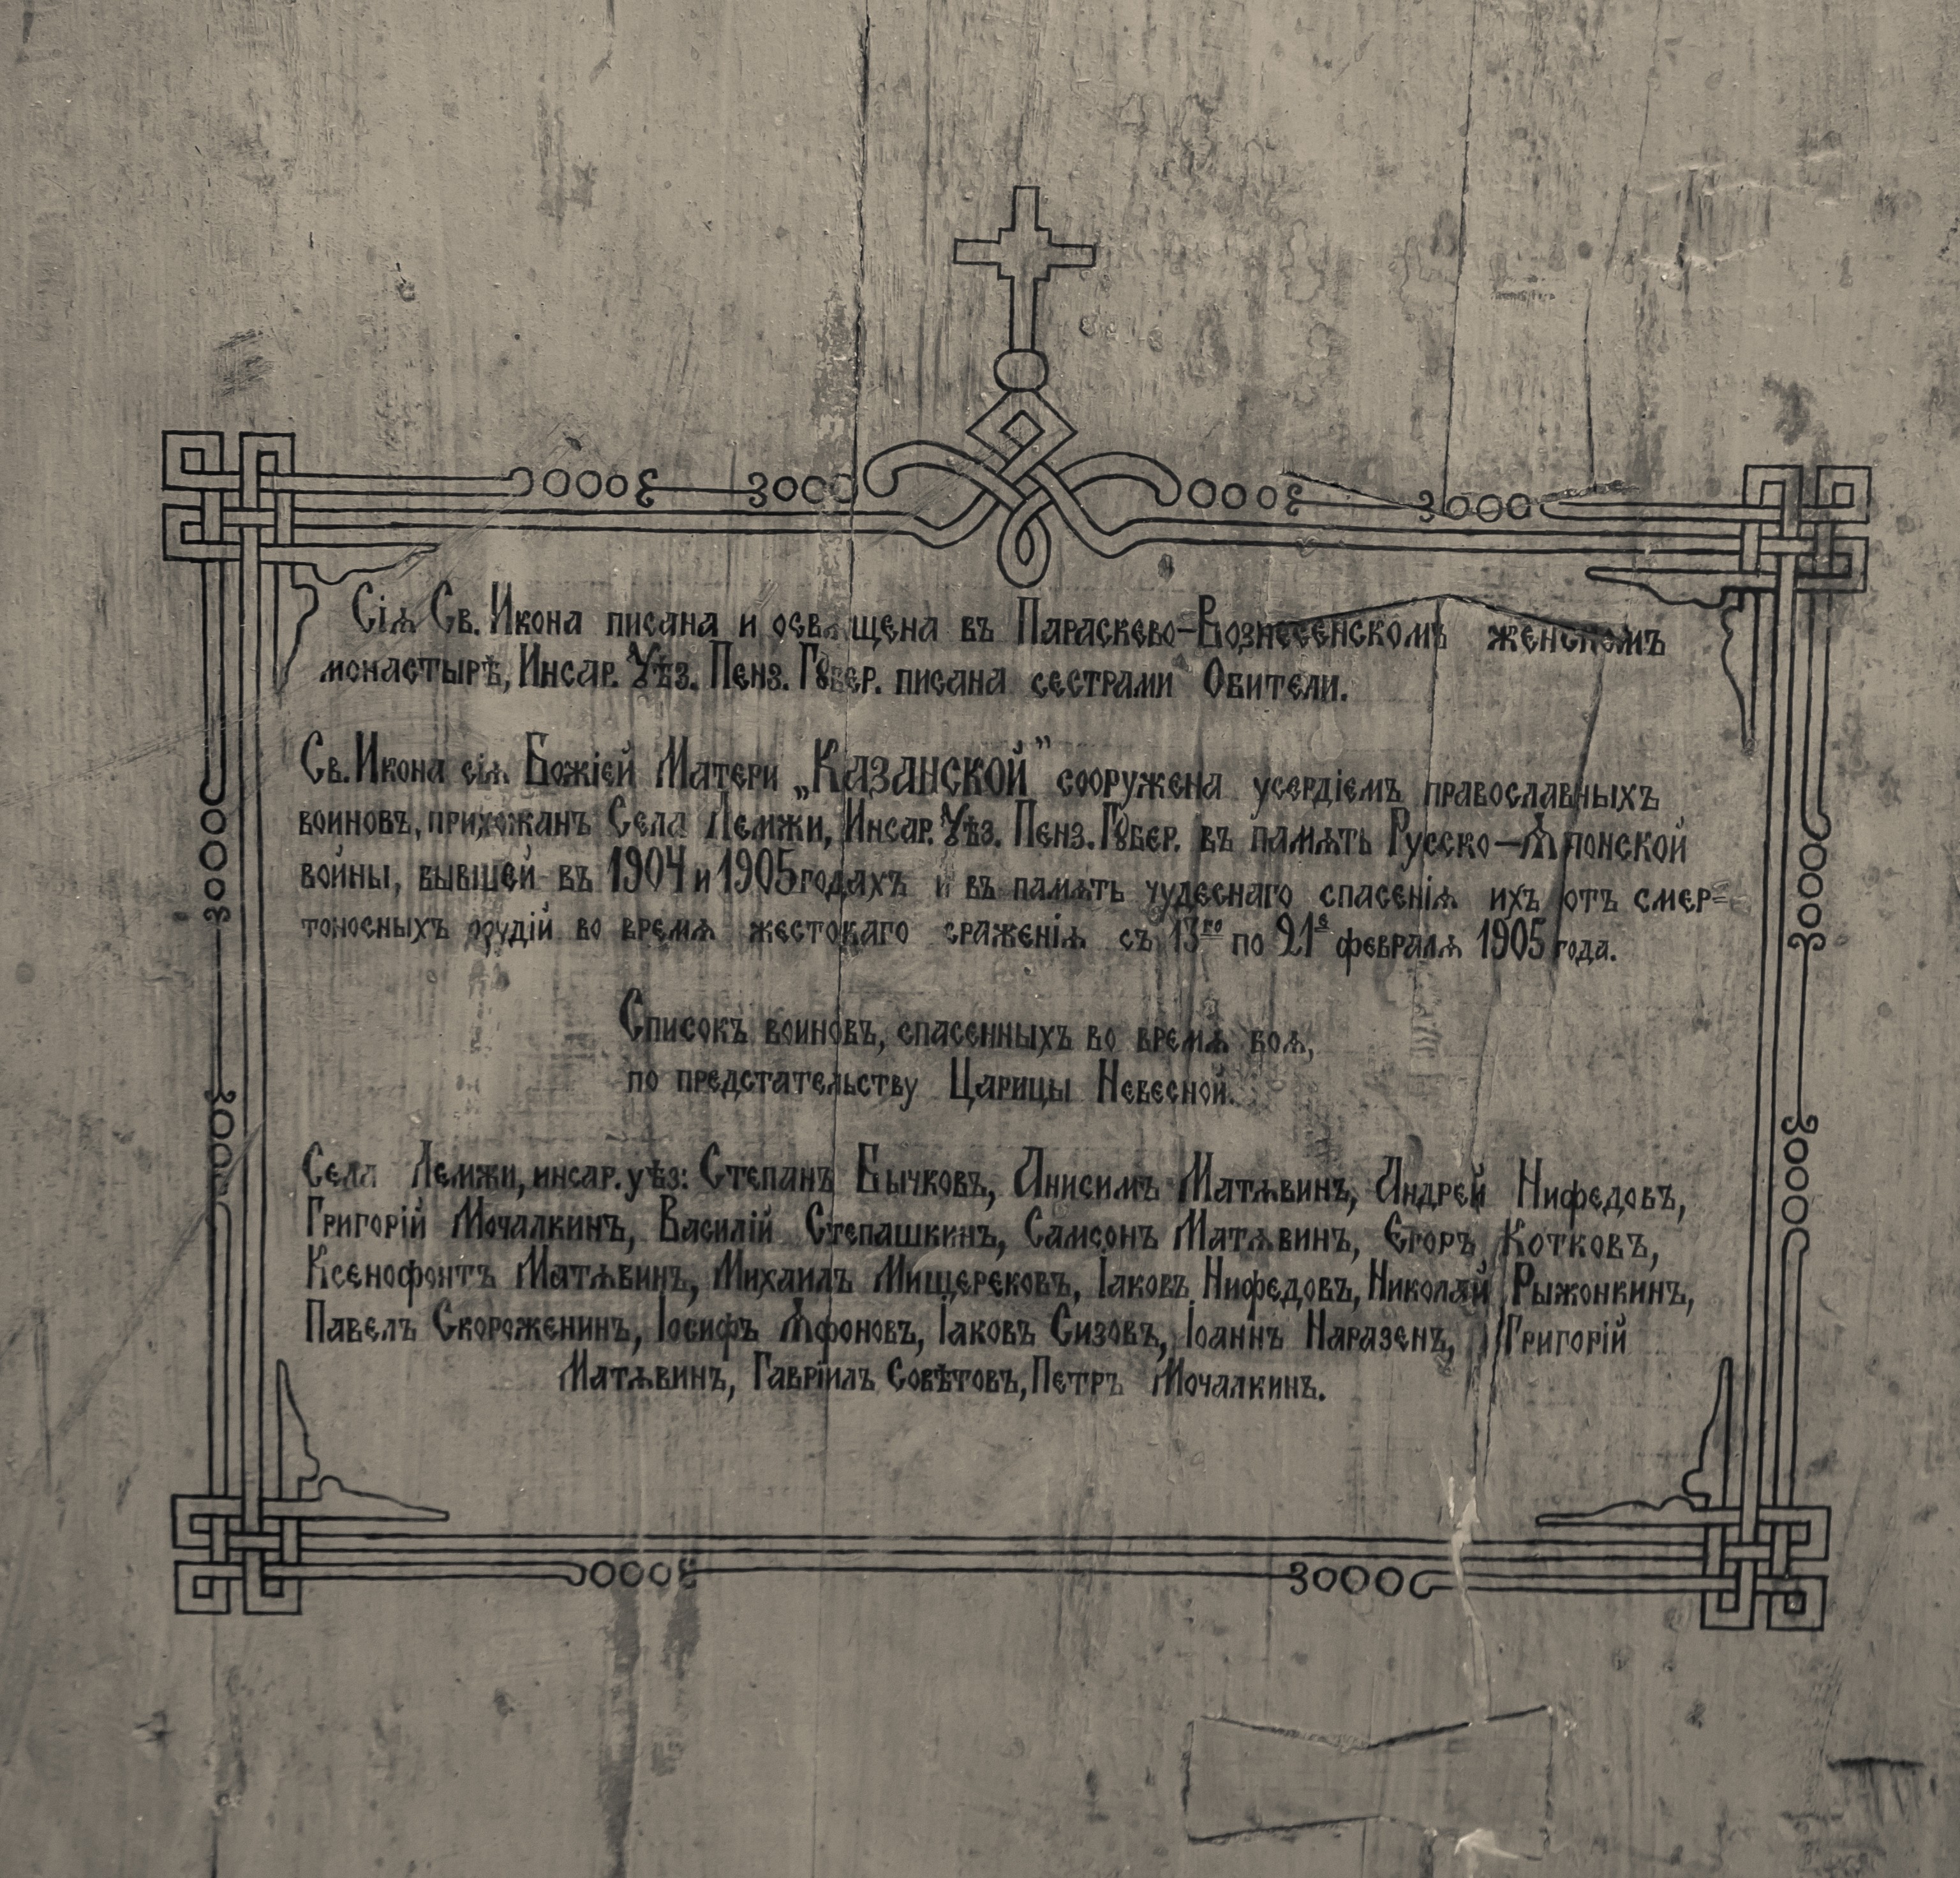 Сіѧ Св. Икона писана и освѧщена въ Параскево-Вознесенскомъ женскомъ
монастырѣ, Инсар. Уѣз. Пенз. Гꙋбер. писана сестрами Обители.
Св. Икона сіѧ Божіей Матери „Казанской” сооружена усердіемъ православныхъ
воиновъ, прихожанъ Села Лемжи, Инсар. Уѣз. Пенз. Гꙋбер. въ памѧть Русско-Ѧпонской
войны, бывшей въ 1904 и 1905 годахъ и въ памѧть чудеснаго спасеніѧ ихъ отъ смер=
тоносныхъ орудій во времѧ жестокаго сраженіѧ съ 13го по 21е февралѧ 1905 года.
Списокъ воиновъ, спасенныхъ во времѧ боѧ,
по предстательству Царицы Небесной.
Села Лемжи, инсар. уѣз: Степанъ Бычковъ, Анисимъ Матѧвинъ, Андрей Нифедовъ,
Григорій Мочалкинъ, Василій Степашкинъ, Самсонъ Матѧвинъ, Егоръ Котковъ,
Ксенофонтъ Матѧвинъ, Михаилъ Мищерековъ, Іаковъ Нифедовъ, Николай Рыжонкинъ,
Павелъ Скороженинъ, Іосифъ Ѧфоновъ, Іаковъ Сизовъ, Іоаннъ Наразенъ, Григорій
Матѧвинъ, Гавріилъ Совѣтовъ, Петръ Мочалкинъ.